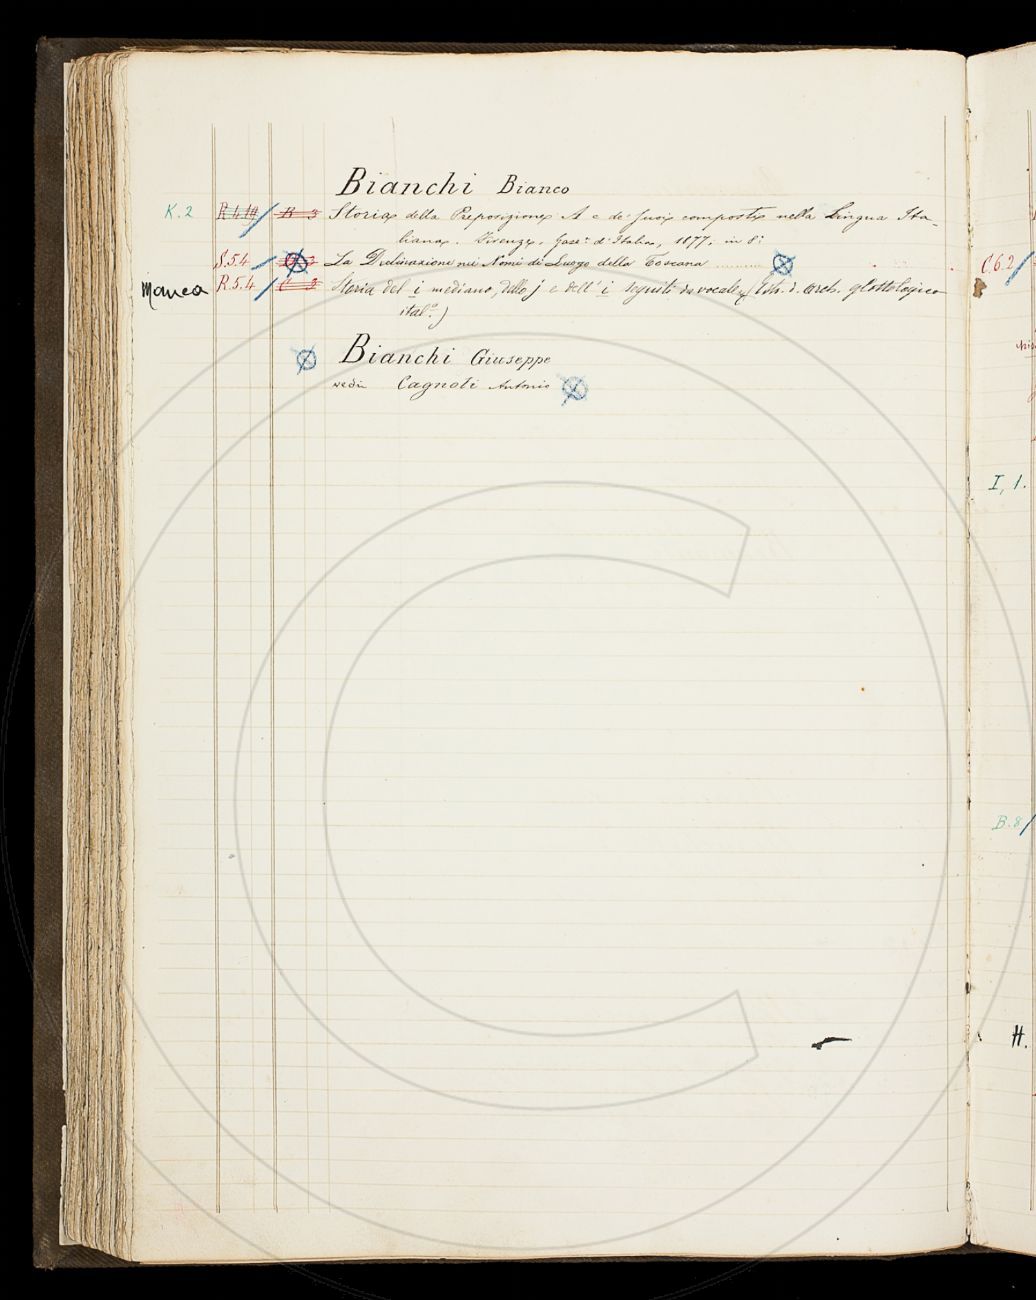 Bianchi Bianco
K. 2 R 4.14 B 3 Storia della Preposizione A e de' suoi composti nella Lingua Ita-
liana. Firenze, Gazz. d'Italia, 1877. in 8°
S.5.4 C 3 La Declinazione nei Nomi di Luogo della Toscana
C.6.2
Manca R.5.4 C 3 Storia del i mediano, dello j e dell' i seguiti da vocale (Estr. d. Arch. glottologico
ital°.)
Bianchi Giuseppe
vedi Cagnoli Antonio
I, 1.
B.8
H.